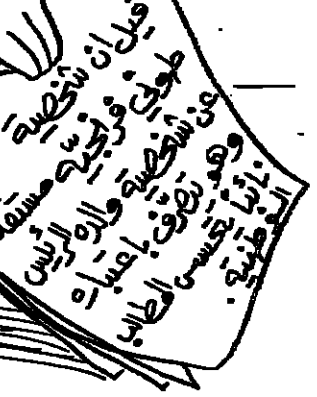 قيل ان شخصية
طوني فرنجية مستقلة
عن شخصية والده الرئيس
وهو يتصرف باعتباره
نائبا يتحسس المطالب
الوطنية